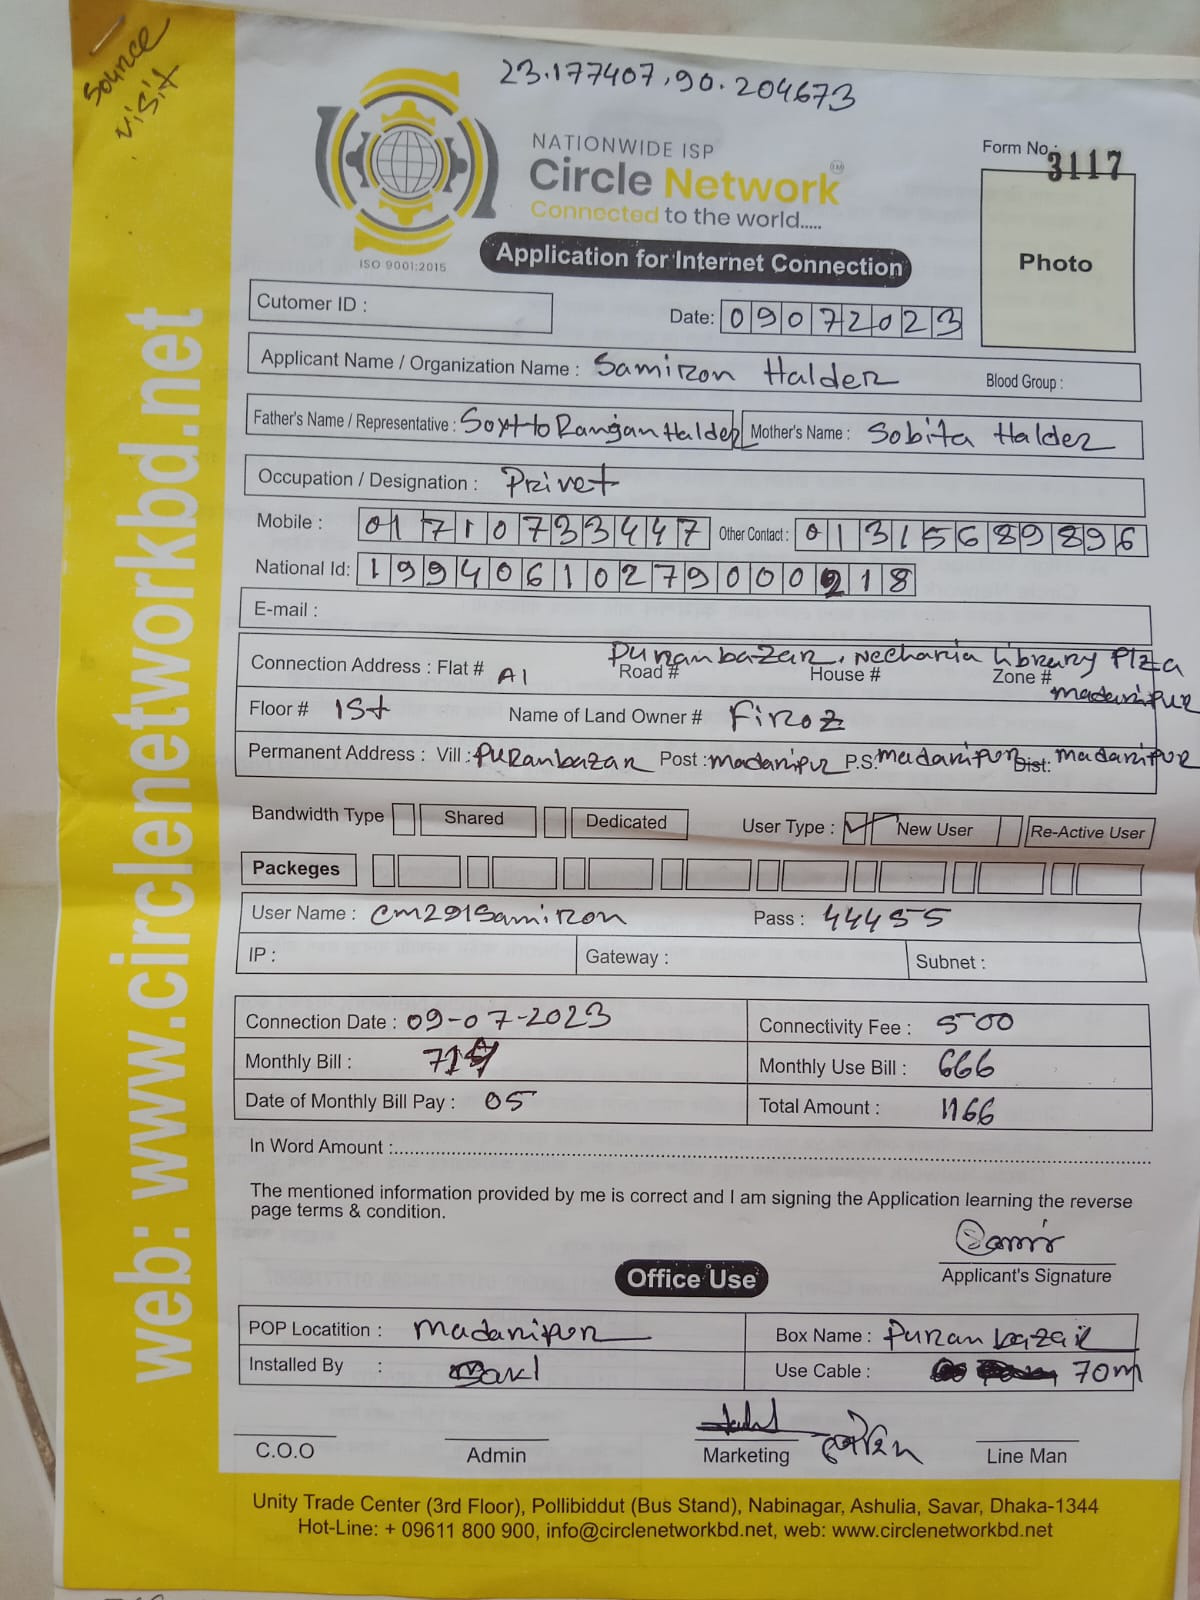 Source
visit
23.177407,90.204673
NATIONWIDE ISP
Circle Network
Connected to the world.....
ISO 9001:2015
Application for Internet Connection
Form No.: 3117
Photo
Cutomer ID :
Date: 09072023
Applicant Name / Organization Name : Samiron Halder Blood Group :
Father's Name / Representative : Soxtto Rangan Halder Mother's Name : Sobita Halder
Occupation / Designation : Privet
Mobile : 01710733447 Other Contact : 01315689896
National Id: 19940610279000218
E-mail :
Puranbazar, Necharia Library Plza
Connection Address : Flat # A1 Road # House # Zone #
Madaripur
Floor # 1st Name of Land Owner # Firoz
Permanent Address : Vill : Puranbazar Post : Madaripur P.S. Madaripur Dist: Madaripur
Bandwidth Type Shared Dedicated User Type : New User Re-Active User
Packeges
User Name : cm291Samiron Pass : 44455
IP : Gateway : Subnet :
Connection Date : 09-07-2023 Connectivity Fee : 500
Monthly Bill : Monthly Use Bill : 666
Date of Monthly Bill Pay : 05 Total Amount : 1166
In Word Amount :
The mentioned information provided by me is correct and I am signing the Application learning the reverse
page terms & condition.
Applicant's Signature
Office Use
POP Locatition : Madaripur Box Name : Puran bazar
Installed By : Use Cable : 70m
C.O.O Admin Marketing Line Man
Unity Trade Center (3rd Floor), Pollibiddut (Bus Stand), Nabinagar, Ashulia, Savar, Dhaka-1344
Hot-Line: + 09611 800 900, info@circlenetworkbd.net, web: www.circlenetworkbd.net
web: www.circlenetworkbd.net